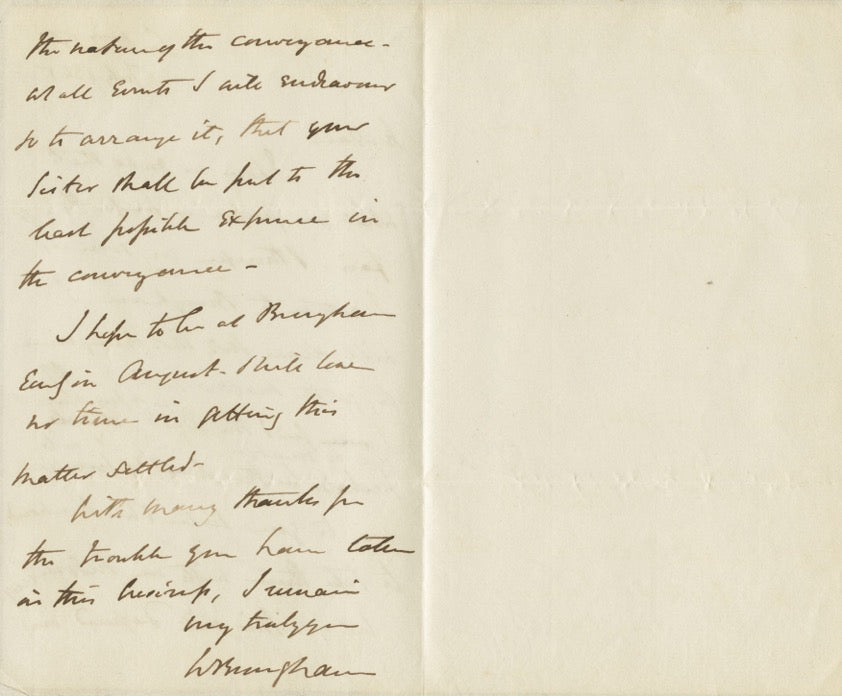 the nature of the conveyance -
at all Events I will endeavour
so to arrange it, that your
Sister shall be put to the
least possible Expense in
the conveyance -
I hope to be at Brougham
Early in August - & will lose
no time in getting this
matter settled -
With many thanks for
the trouble you have taken
in this business, I remain
very truly yrs
W Brougham